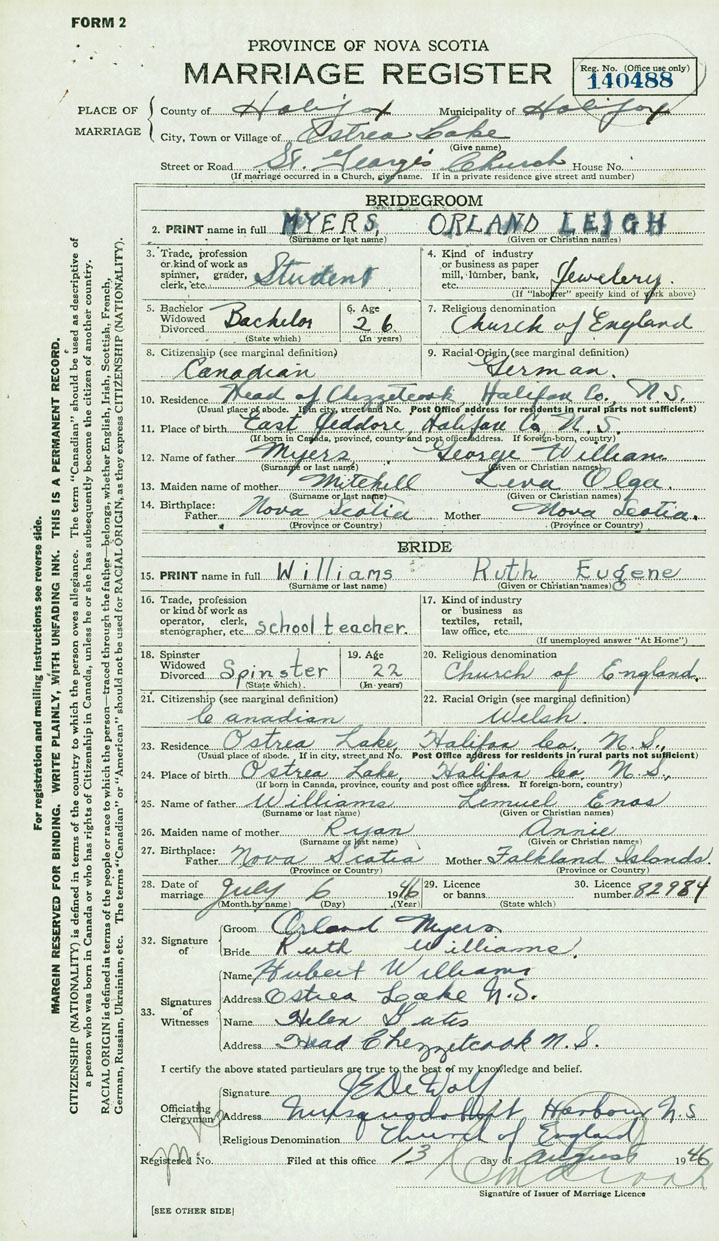 FORM 2
PROVINCE OF NOVA SCOTIA
MARRIAGE REGISTER
Reg. No. (Office use only)
140488
PLACE OF MARRIAGE
County of Halifax Municipality of Halifax
City, Town or Village of Ostrea Lake
(Give name)
Street or Road St. George's Church House No.
(If marriage occurred in a Church, give name. If in a private residence give street and number)
BRIDEGROOM
2. PRINT name in full MYERS, ORLAND LEIGH
(Surname or last name) (Given or Christian names)
3. Trade, profession
or kind of work as
spinner, grader,
clerk, etc. Student
4. Kind of industry
or business as paper
mill, lumber, bank,
etc. Jewelery.
(If "labourer" specify kind of work above)
5. Bachelor
Widowed
Divorced Bachelor
(State which)
6. Age
26
(In years)
7. Religious denomination
Church of England
8. Citizenship (see marginal definition)
Canadian
9. Racial Origin (see marginal definition)
German.
10. Residence Head of Chezzetcook, Halifax Co., N.S.
(Usual place of abode. If in city, street and No. Post Office address for residents in rural parts not sufficient)
11. Place of birth East Jeddore, Halifax Co. N.S.
(If born in Canada, province, county and post office address. If foreign-born, country)
12. Name of father Myers, George William
(Surname or last name) (Given or Christian names)
13. Maiden name of mother Mitchell Leva Olga.
(Surname or last name) (Given or Christian names)
14. Birthplace:
Father Nova Scotia Mother Nova Scotia.
(Province or Country) (Province or Country)
BRIDE
15. PRINT name in full Williams Ruth Eugene
(Surname or last name) (Given or Christian names)
16. Trade, profession
or kind of work as
operator, clerk,
stenographer, etc. school teacher.
17. Kind of industry
or business as
textiles, retail,
law office, etc.
(If unemployed answer "At Home")
18. Spinster
Widowed
Divorced Spinster
(State which)
19. Age
22
(In years)
20. Religious denomination
Church of England.
21. Citizenship (see marginal definition)
Canadian
22. Racial Origin (see marginal definition)
Welsh.
23. Residence Ostrea Lake, Halifax Co., N.S.,
(Usual place of abode. If in city, street and No. Post Office address for residents in rural parts not sufficient)
24. Place of birth Ostrea Lake, Halifax Co., N.S.,
(If born in Canada, province, county and post office address. If foreign-born, country)
25. Name of father Williams Lemuel Enos
(Surname or last name) (Given or Christian names)
26. Maiden name of mother Ryan Annie
(Surname or last name) (Given or Christian names)
27. Birthplace:
Father Nova Scotia Mother Falkland Islands.
(Province or Country) (Province or Country)
28. Date of
marriage July 6 1946
(Month by name) (Day) (Year)
29. Licence
or banns
(State which)
30. Licence
number 82984
32. Signature of
Groom Orland Myers.
Bride Ruth Williams.
33. Signatures of Witnesses
Name Hubert Williams
Address Ostrea Lake N.S.
Name Helen Gates
Address Head Chezzetcook N.S.
I certify the above stated particulars are true to the best of my knowledge and belief.
Officiating Clergyman
Signature J E DeWolf
Address Musquodoboit Harbour N.S
Religious Denomination Church of England
Registered No. Filed at this office 13 day of August 1946
Signature of Issuer of Marriage Licence
[SEE OTHER SIDE]
For registration and mailing instructions see reverse side.
MARGIN RESERVED FOR BINDING. WRITE PLAINLY, WITH UNFADING INK. THIS IS A PERMANENT RECORD.
CITIZENSHIP (NATIONALITY) is defined in terms of the country to which the person owes allegiance. The term "Canadian" should be used as descriptive of
a person who was born in Canada or who has rights of Citizenship in Canada, unless he or she has subsequently become the citizen of another country.
RACIAL ORIGIN is defined in terms of the people or race to which the person—traced through the father—belongs, whether English, Irish, Scottish, French,
German, Russian, Ukrainian, etc. The terms "Canadian" or "American" should not be used for RACIAL ORIGIN, as they express CITIZENSHIP (NATIONALITY).